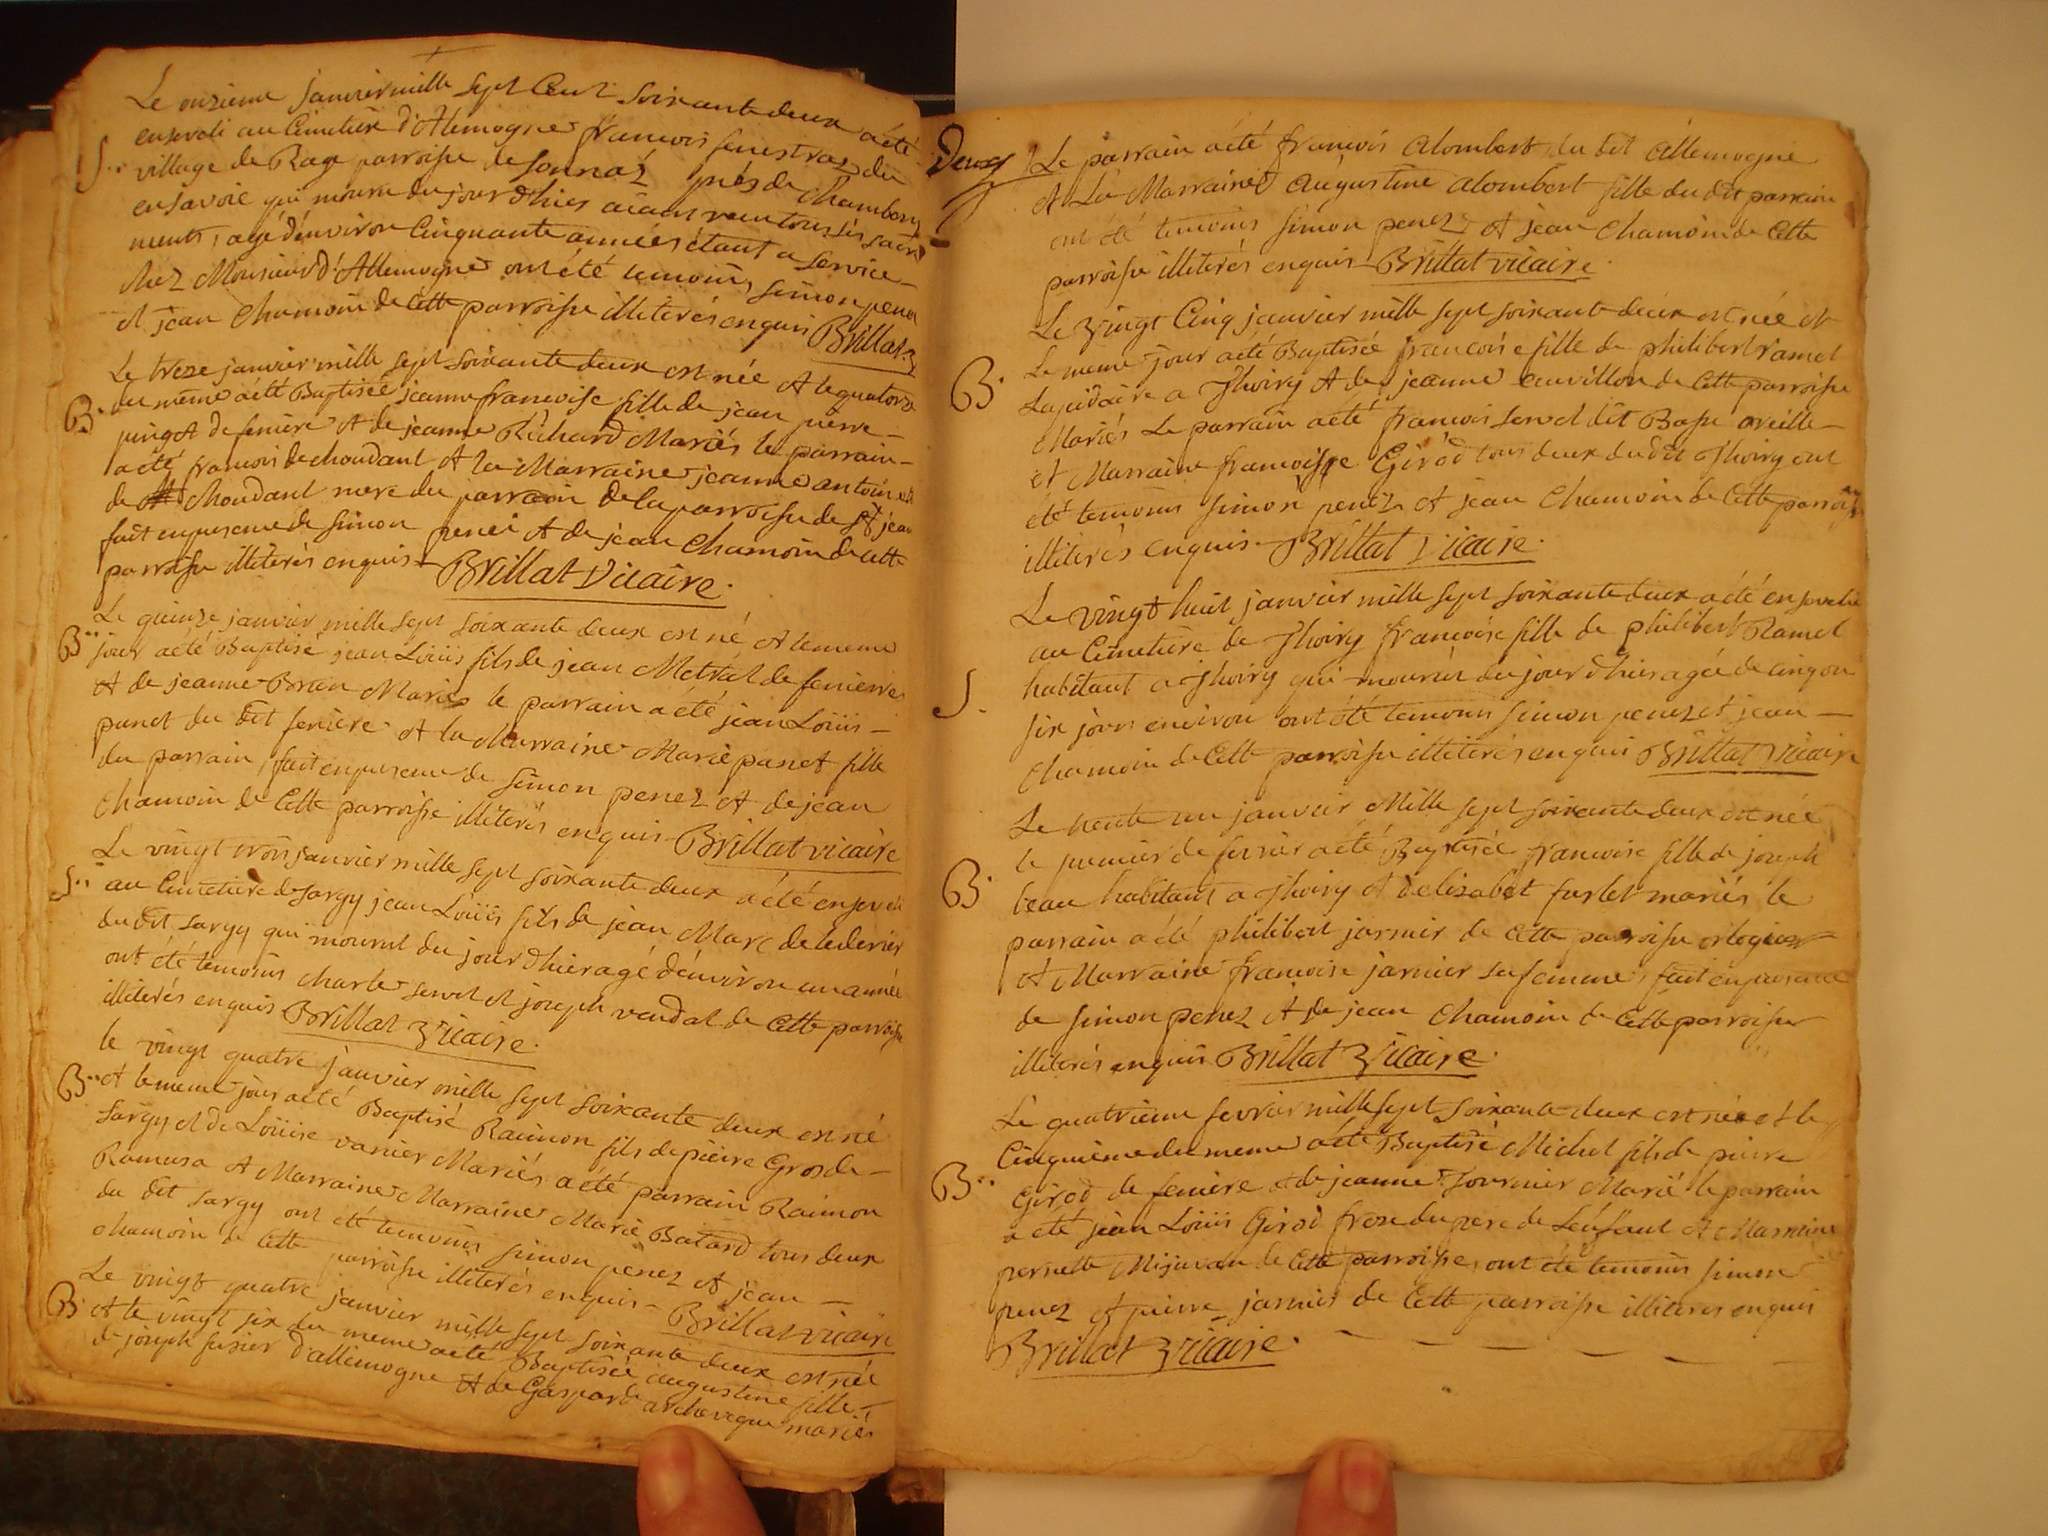 Le onzieme janvier mille sept Cent soixante deux a été
S.. enseveli au Cimetiere d'Alemogne francois fenestraz du
village de Rage parroisse de Sonnaz près de Chambery
en savoie qui mouru du jour d'hier aiant recu tous ses sacre
ments, agé d'environ Cinquante années étant a service
chez Monsieur d'Allemogne ont été temoins, simon penez
et jean Chamoin de Cette parroisse illiterés enquis Brillat
Le treze janvier mille sept soixante deux est née et le quatorze
B. du même a été Baptisée jeanne francoise fille de jean pierre
pinget de feniere et de jeanne Richard Mariés le parrain
a été francois de choudant et la Marraine jeanne antoin
de Choudant mere du parrain de la parroisse de St jean
fait en presence de simon penez et de jean Chamoin de cette
parroisse illiterés enquis Brillat Vicaire.
Le quinze janvier mille sept soixante deux est né, et le meme
B.. jour a été Baptisé jean Loüis fils de jean Metral de fenierre
et de jeanne Brun Mariés le parrain a été jean Loüis
panet du dit feniere et la Marraine Marie panet fille
du parrain, fait en presence de simon penez et de jean
Chamoin de Cette parroisse illiterés enquis Brillat vicaire
Le vingt trois janvier mille sept soixante deux a été enseveli
S.. au Cimetiere de sargy jean Loüis fils de jean Marc de lederier
du dit sargy qui mourut du jour d'hier agé d'environ un année
ont été temoins Charle servet et joseph vendat de Cette parroisse
illiterés enquis Brillat Vicaire.
le vingt quatre janvier mille sept soixante deux est né
B.. et le meme jour a été Baptisé Raimon fils de pierre Gros de
sargy et de Loüise vanier Mariés a été parrain Raimon
Ramusa et Marraine Marraine Marie Batard tous deux
du dit sargy ont été temoins simon penez et jean
chamoin de Cette parroisse illiterés enquis Brillat vicaire
Le vingt quatre janvier mille sept soixante deux est née
B. et le vingt six du meme a été Baptisée augustine fille
de joseph fusier d'allemogne et de Gasparde archeveque mariés
Deux
Le parrain a été francois alombert du dit allemogne
et La Marraine augustine alombert fille du dit parrain
ont été temoins simon penez et jean Chamoin de Cette
parroisse illiterés enquis Brillat vicaire.
Le vingt Cinq janvier mille sept soixante deux est née et
Le meme jour a été Baptisée francoise fille de philibert ramel
B. Lapidaire a Thoiry et de jeanne cuvillon de Cette parroisse
Mariés Le parrain a été francois servet dit Basse oreille
et Marraine francoise Girod tous deux du dit Thoiry ont
été temoins simon penez et jean Chamoin de Cette parroisse
illiterés enquis Brillat Vicaire.
Le vingt huit janvier mille sept soixante deux a été ensevelie
au Cimetiere de Thoiry francoise fille de philibert Ramel
S. habitant a Thoiry qui mourut du jour d'hier agée de cinq ou
six jours environ ont été temoins simon penez et jean
Chamoin de Cette parroisse illiterés enquis Brillat Vicaire
Le trente un janvier Mille sept soixante deux est née
le premier de fevrier a été Baptisée francoise fille de joseph
B. beau habitant a Thoiry et d'elizabet furlet mariés le
parrain a été philibert jarnier de Cette parroisse orloger
et Marraine francoise jarnier sa femme, fait en presence
de simon penez et de jean Chamoin de Cette parroisse
illiterés enquis Brillat Vicaire.
Le quatrieme fevrier mille sept soixante deux est né et le
Cinquieme du meme a été Baptisé Michel fils de pierre
B.. Girod de feniere et de jeanne fournier Marié le parrain
a été jean Loüis Girod frere du pere de L'enfant et Marraine
pernette Mijavan de Cette parroisse, ont été temoins simon
penez et pierre jarnier de Cette parroisse illiterés enquis
Brillat Vicaire.